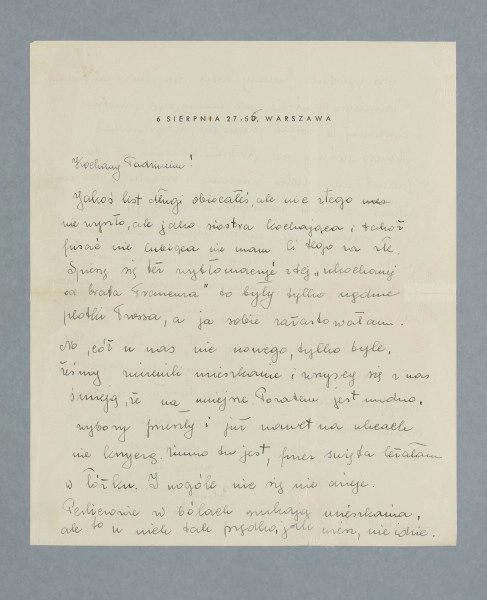 6 SIERPNIA 27-55, WARSZAWA
Kochany Tadziuniu!
Jakoś list długi obiecałeś, ale nic z tego
nie wyszło, ale jako siostra kochająca i takoż
pisać nie lubiąca nie mam Ci tego za złe.
Spieszę się też wytłomaczyć z tej „ukochanej
od brata Franciszka" to były tylko
plotki Prossa, a ja sobie zażartowałam.
No, cóż u nas nic nowego, tylko tyle,
żeśmy zmienili mieszkanie i wszyscy się z nas
śmieją, że na
wybory przeszły i już nawet na ulicach
nie krzyczą. Zimno tu jest, przez święta leżałam
w łóżku. I wogóle nic się nie dzieje.
w bólach szukają mieszkania,
ale to u nich tak prędko, jak wiesz, nie idzie.